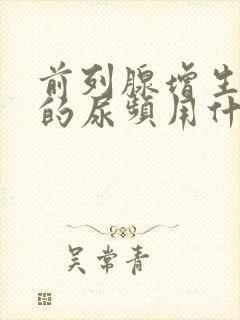 前列腺增生
的尿频用什
吴常青